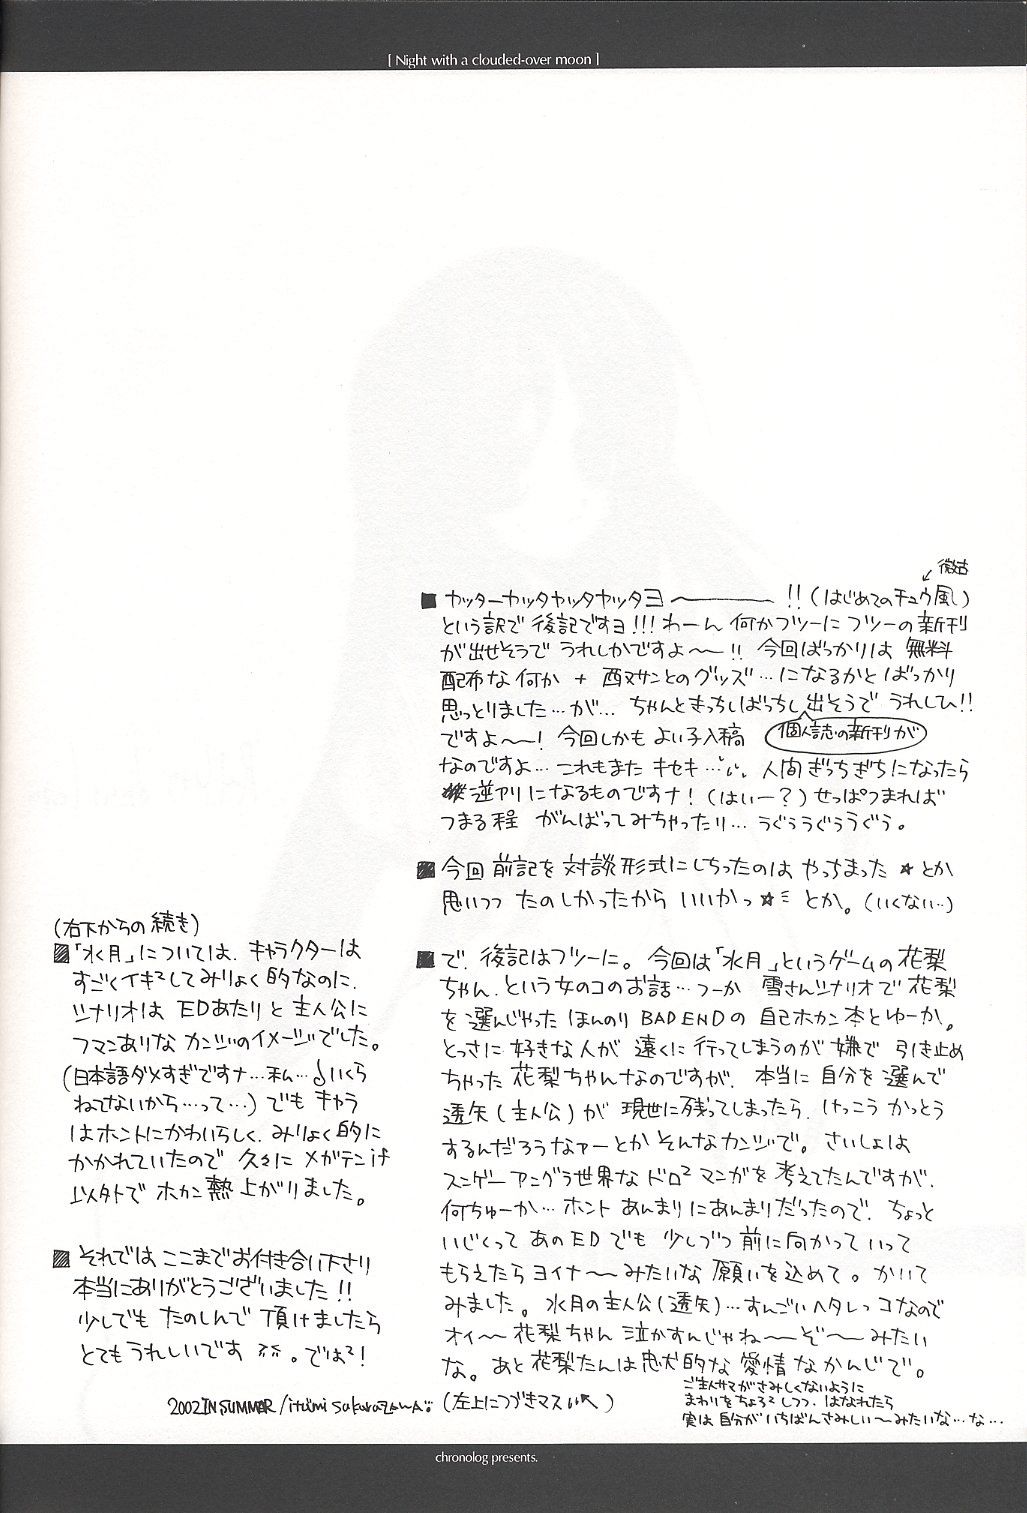 [ Night with a clouded-over moon ]
微古
■ ヤッターヤッタヤッタヤッタヨ〜!!(はじめてのチュウ風)
という訳で 後記ですヨ!!! わーん 何かフツーに フツーの新刊
が出せそうで うれしかですよ〜!! 今回ばっかりは 無料
配布な何か + 酉ヌサンとのグッズ…になるかと ばっかり
思っとりました…が… ちゃんときっちしばっちし出そうで うれしひ!!
個人誌の新刊が
ですよ〜! 今回しかも よい子入稿
なのですよ… これもまた キセキ… 人間 ぎっちぎちになったら
逆アリになるものですナ! (はいー?) せっぱつまれば
つまる程 がんばってみちゃったり… うぐぅうぐぅうぐぅ。
■ 今回 前記を 対談形式にしちったのは やっちまった ☆ とか
思いつつ たのしかったから いいかっ☆ミ とか。(いくない…)
■ で、後記はフツーに。 今回は「水月」というゲームの 花梨
ちゃん、という女のコのお話… つーか 雪さんシナリオで 花梨
を 選んじゃった ほんのり BAD ENDの 自己ホカン本とゆーか。
とっさに 好きな人が 遠くに行ってしまうのが 嫌で 引き止め
ちゃった 花梨ちゃんなのですが、 本当に 自分を 選んで
透矢(主人公)が 現世に残ってしまったら、けっこう かっとう
するんだろうなァー とか そんなカンジで。さいしょは
スンゲー アングラ世界な ドロ²マンガを 考えてたんですが、
何ちゅーか… ホント あんまりにあんまりだったので、 ちょっと
いじくって あのEDでも 少しづつ 前に向かって いって
もらえたら ヨイナ〜 みたいな 願いを込めて。 かいて
みました。 水月の主人公(透矢)… すんごいヘタレっコなので
オイ〜 花梨ちゃん 泣かすんじゃね〜ぞ〜 みたい
な。あと 花梨たんは 忠犬的な 愛情 なかんじで。
ご主人サマがさみしくないように
まわりをちょろ²しつつ、はなれたら
実は 自分が いちばんさみしい〜みたいな…な…
(左上につづきマス↖)
(右下からの 続き)
■「水月」については、キャラクターは
すごくイキ²してみりょく的なのに、
シナリオは EDあたりと 主人公に
フマンありな カンジのイメージでした。
(日本語ダメすぎですナ…私… いくら
ねてないから…って…) でも キャラ
はホントにかわいらしく、みりょく的に
かかれていたので 久々に メガテンif
以外で ホカン熱 上がりました。
■ それでは ここまでお付き合い下さり
本当にありがとうございました!!
少しでも たのしんで 頂けましたら
とてもうれしいです 。では²!
2002 IN SUMMER / itsumi sakurazawa
chronolog presents.